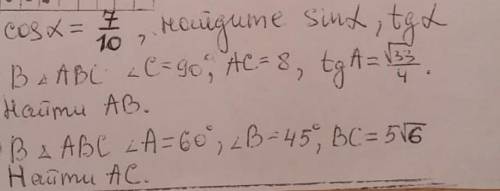 cosα = 7/10, найдите sinα, tgα
В △ ABC ∠C=90°, AC=8, tgA=√33/4.
Найти AB.
В △ ABC ∠A=60°, ∠B=45°, BC=5√6
Найти AC.